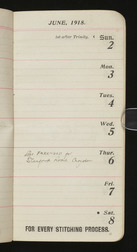 JUNE, 1918.
1st after Trinity. SUN.
2
Mon.
3
Tues.
4
Wed.
5
Thur.
6
Fri.
7
Sat.
8
FOR EVERY STITCHING PROCESS.